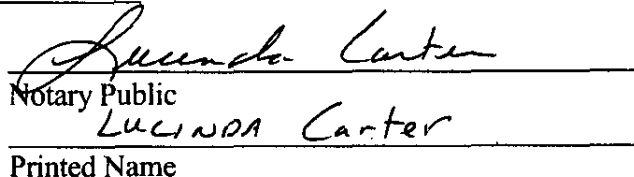 Lucinda Carter
Notary Public
LUCINDA Carter
Printed Name